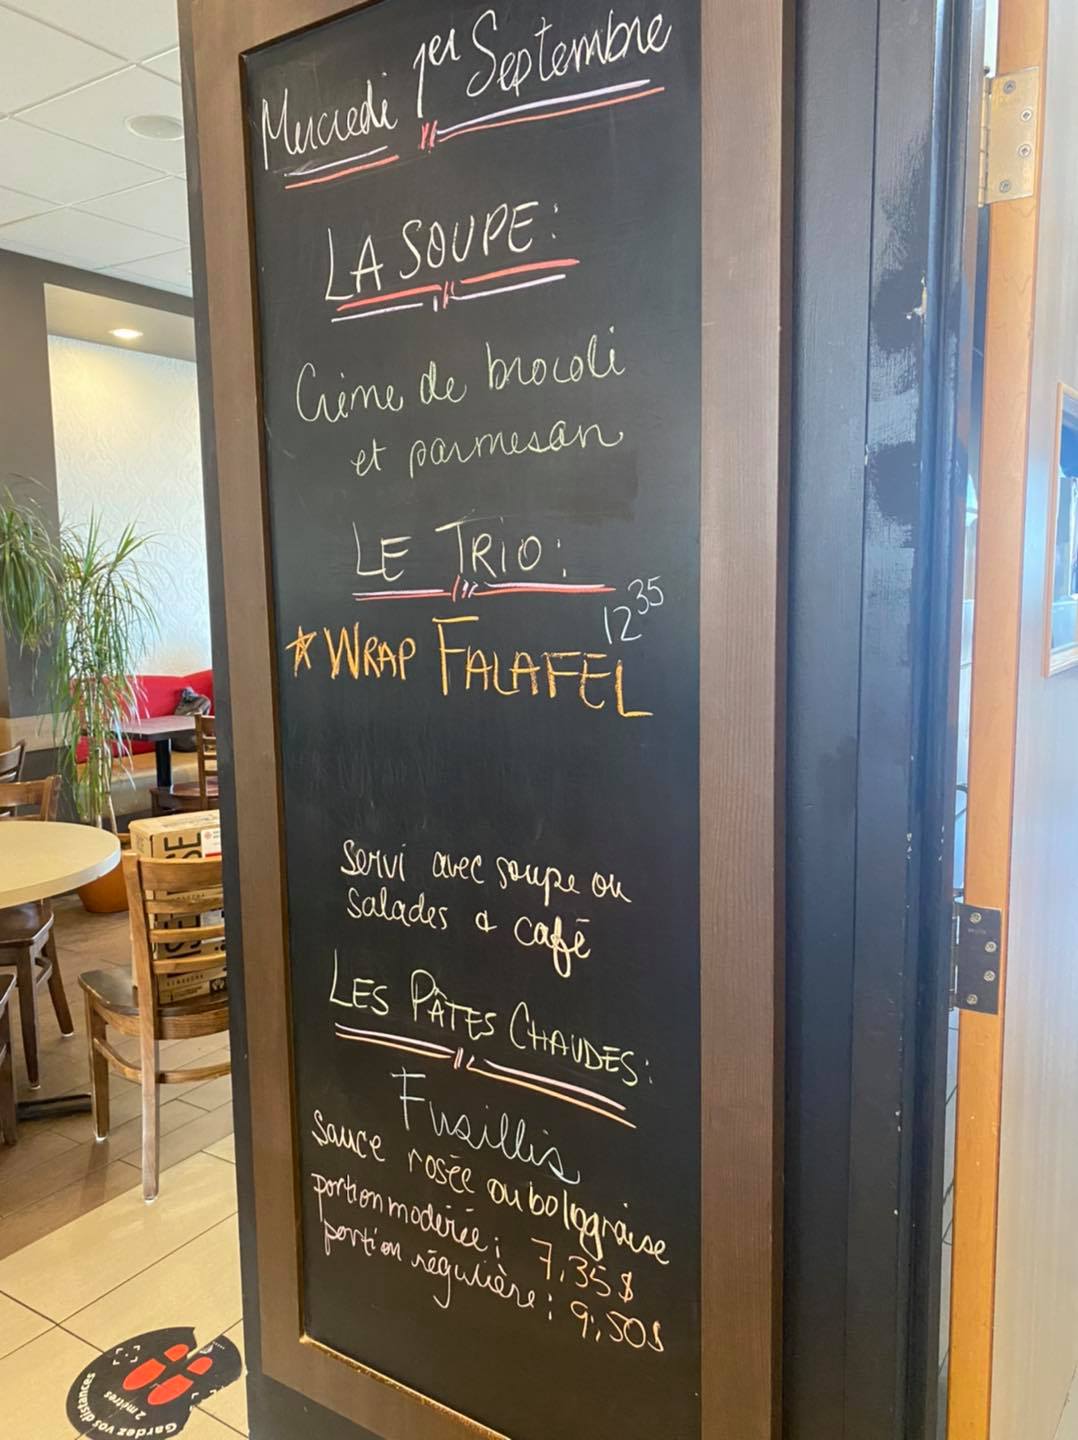 Mercredi 1er Septembre
LA SOUPE:
Crème de brocoli
et parmesan
LE TRIO:
12 35
WRAP FALAFEL
Servi avec soupe ou
Salades & café
LES PÂTES CHAUDES:
Fusillis
Sauce rosée ou bolognaise
portion modérée: 7,35$
portion régulière: 9,50$
Gardez vos distances
2 mètres